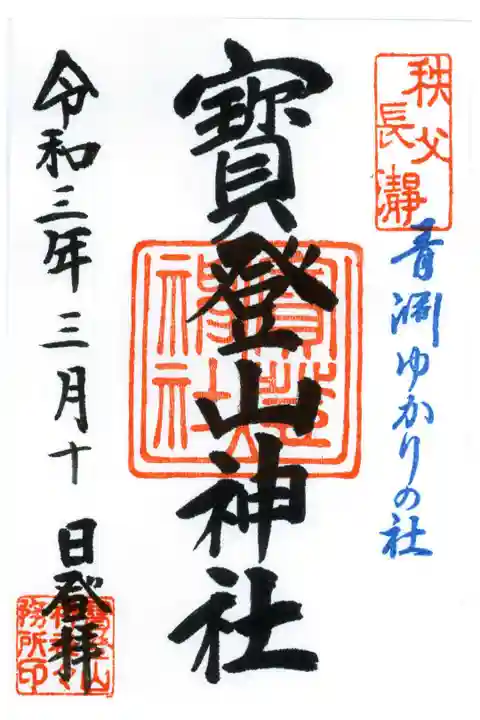 秩父
長瀞
青渊ゆかりの社
寳登山神社
令和三年三月十日登拝
寳登山神社
寳登山
神社々
務所印